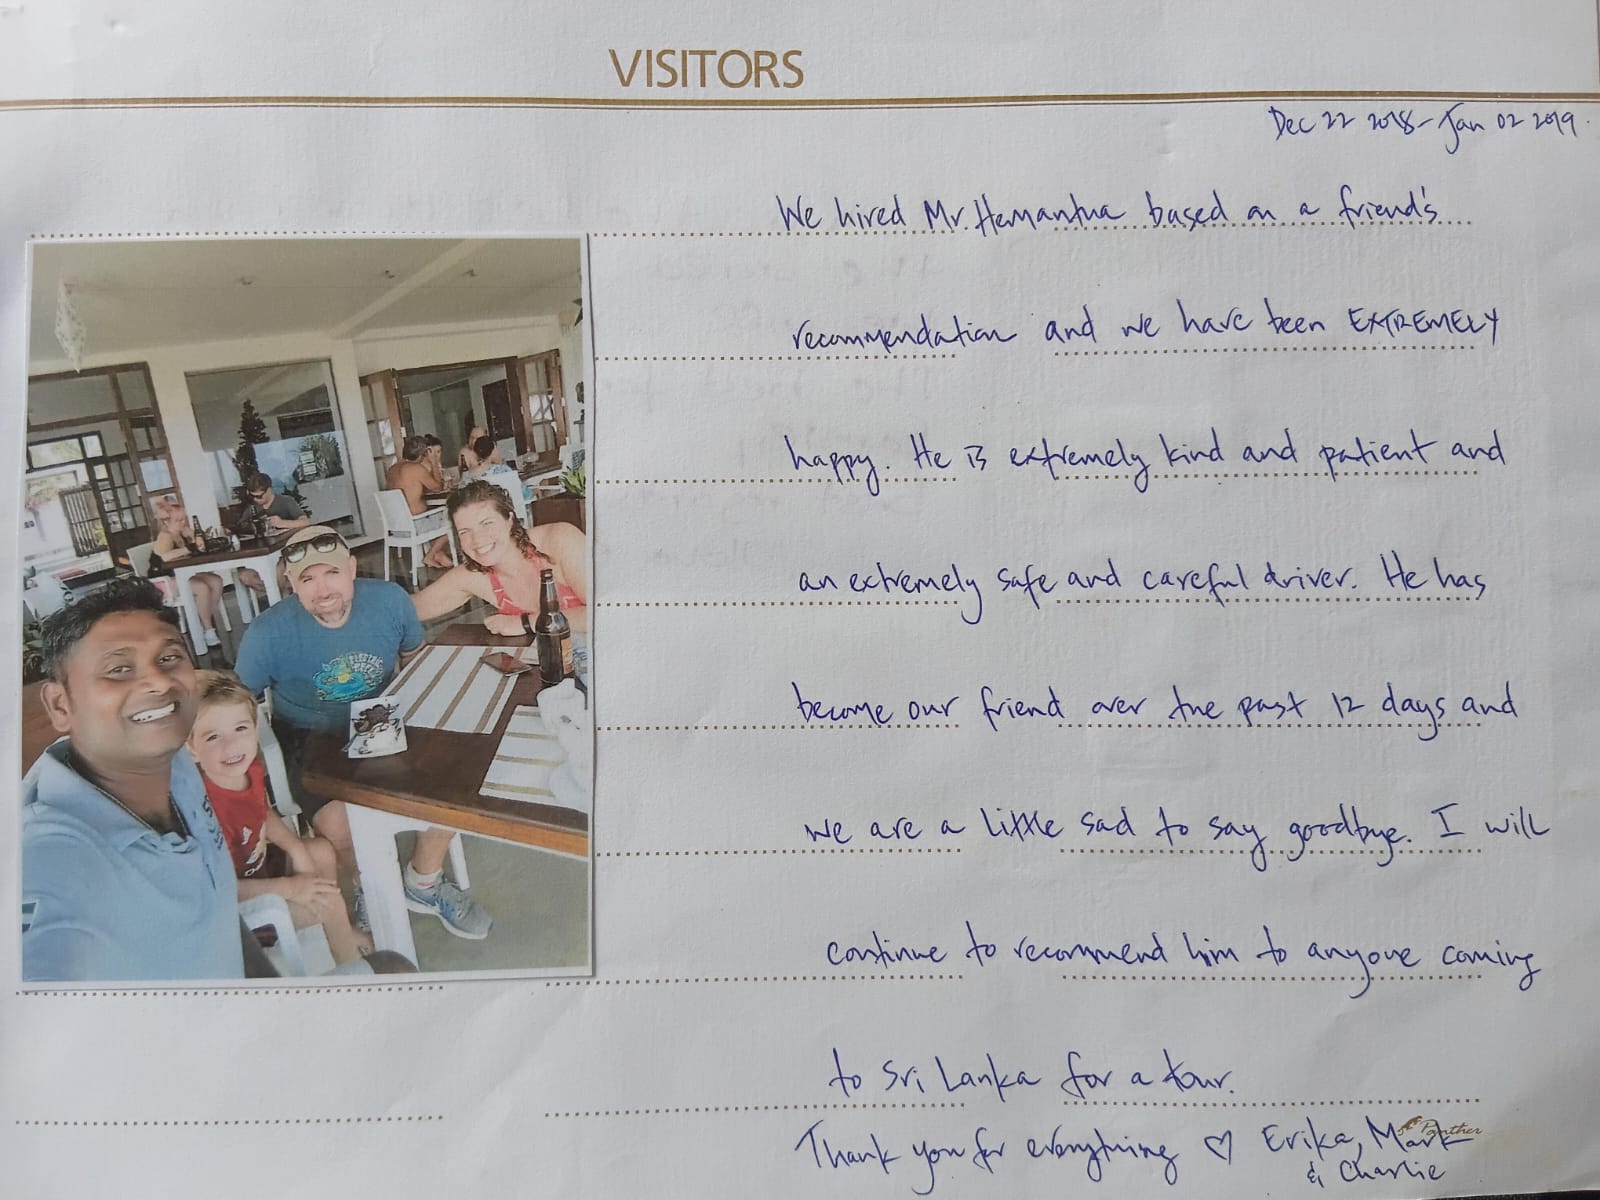 VISITORS
Dec 22 2018 - Jan 02 2019.
We hired Mr. Hemantha based on a friend's
recommendation and we have been EXTREMELY
happy. He is extremely kind and patient and
an extremely safe and careful driver. He has
become our friend over the past 12 days and
we are a little sad to say goodbye. I will
continue to recommend him to anyone coming
to Sri Lanka for a tour.
Thank you for everything ♡ Erika, Mark
& Charlie
Panther